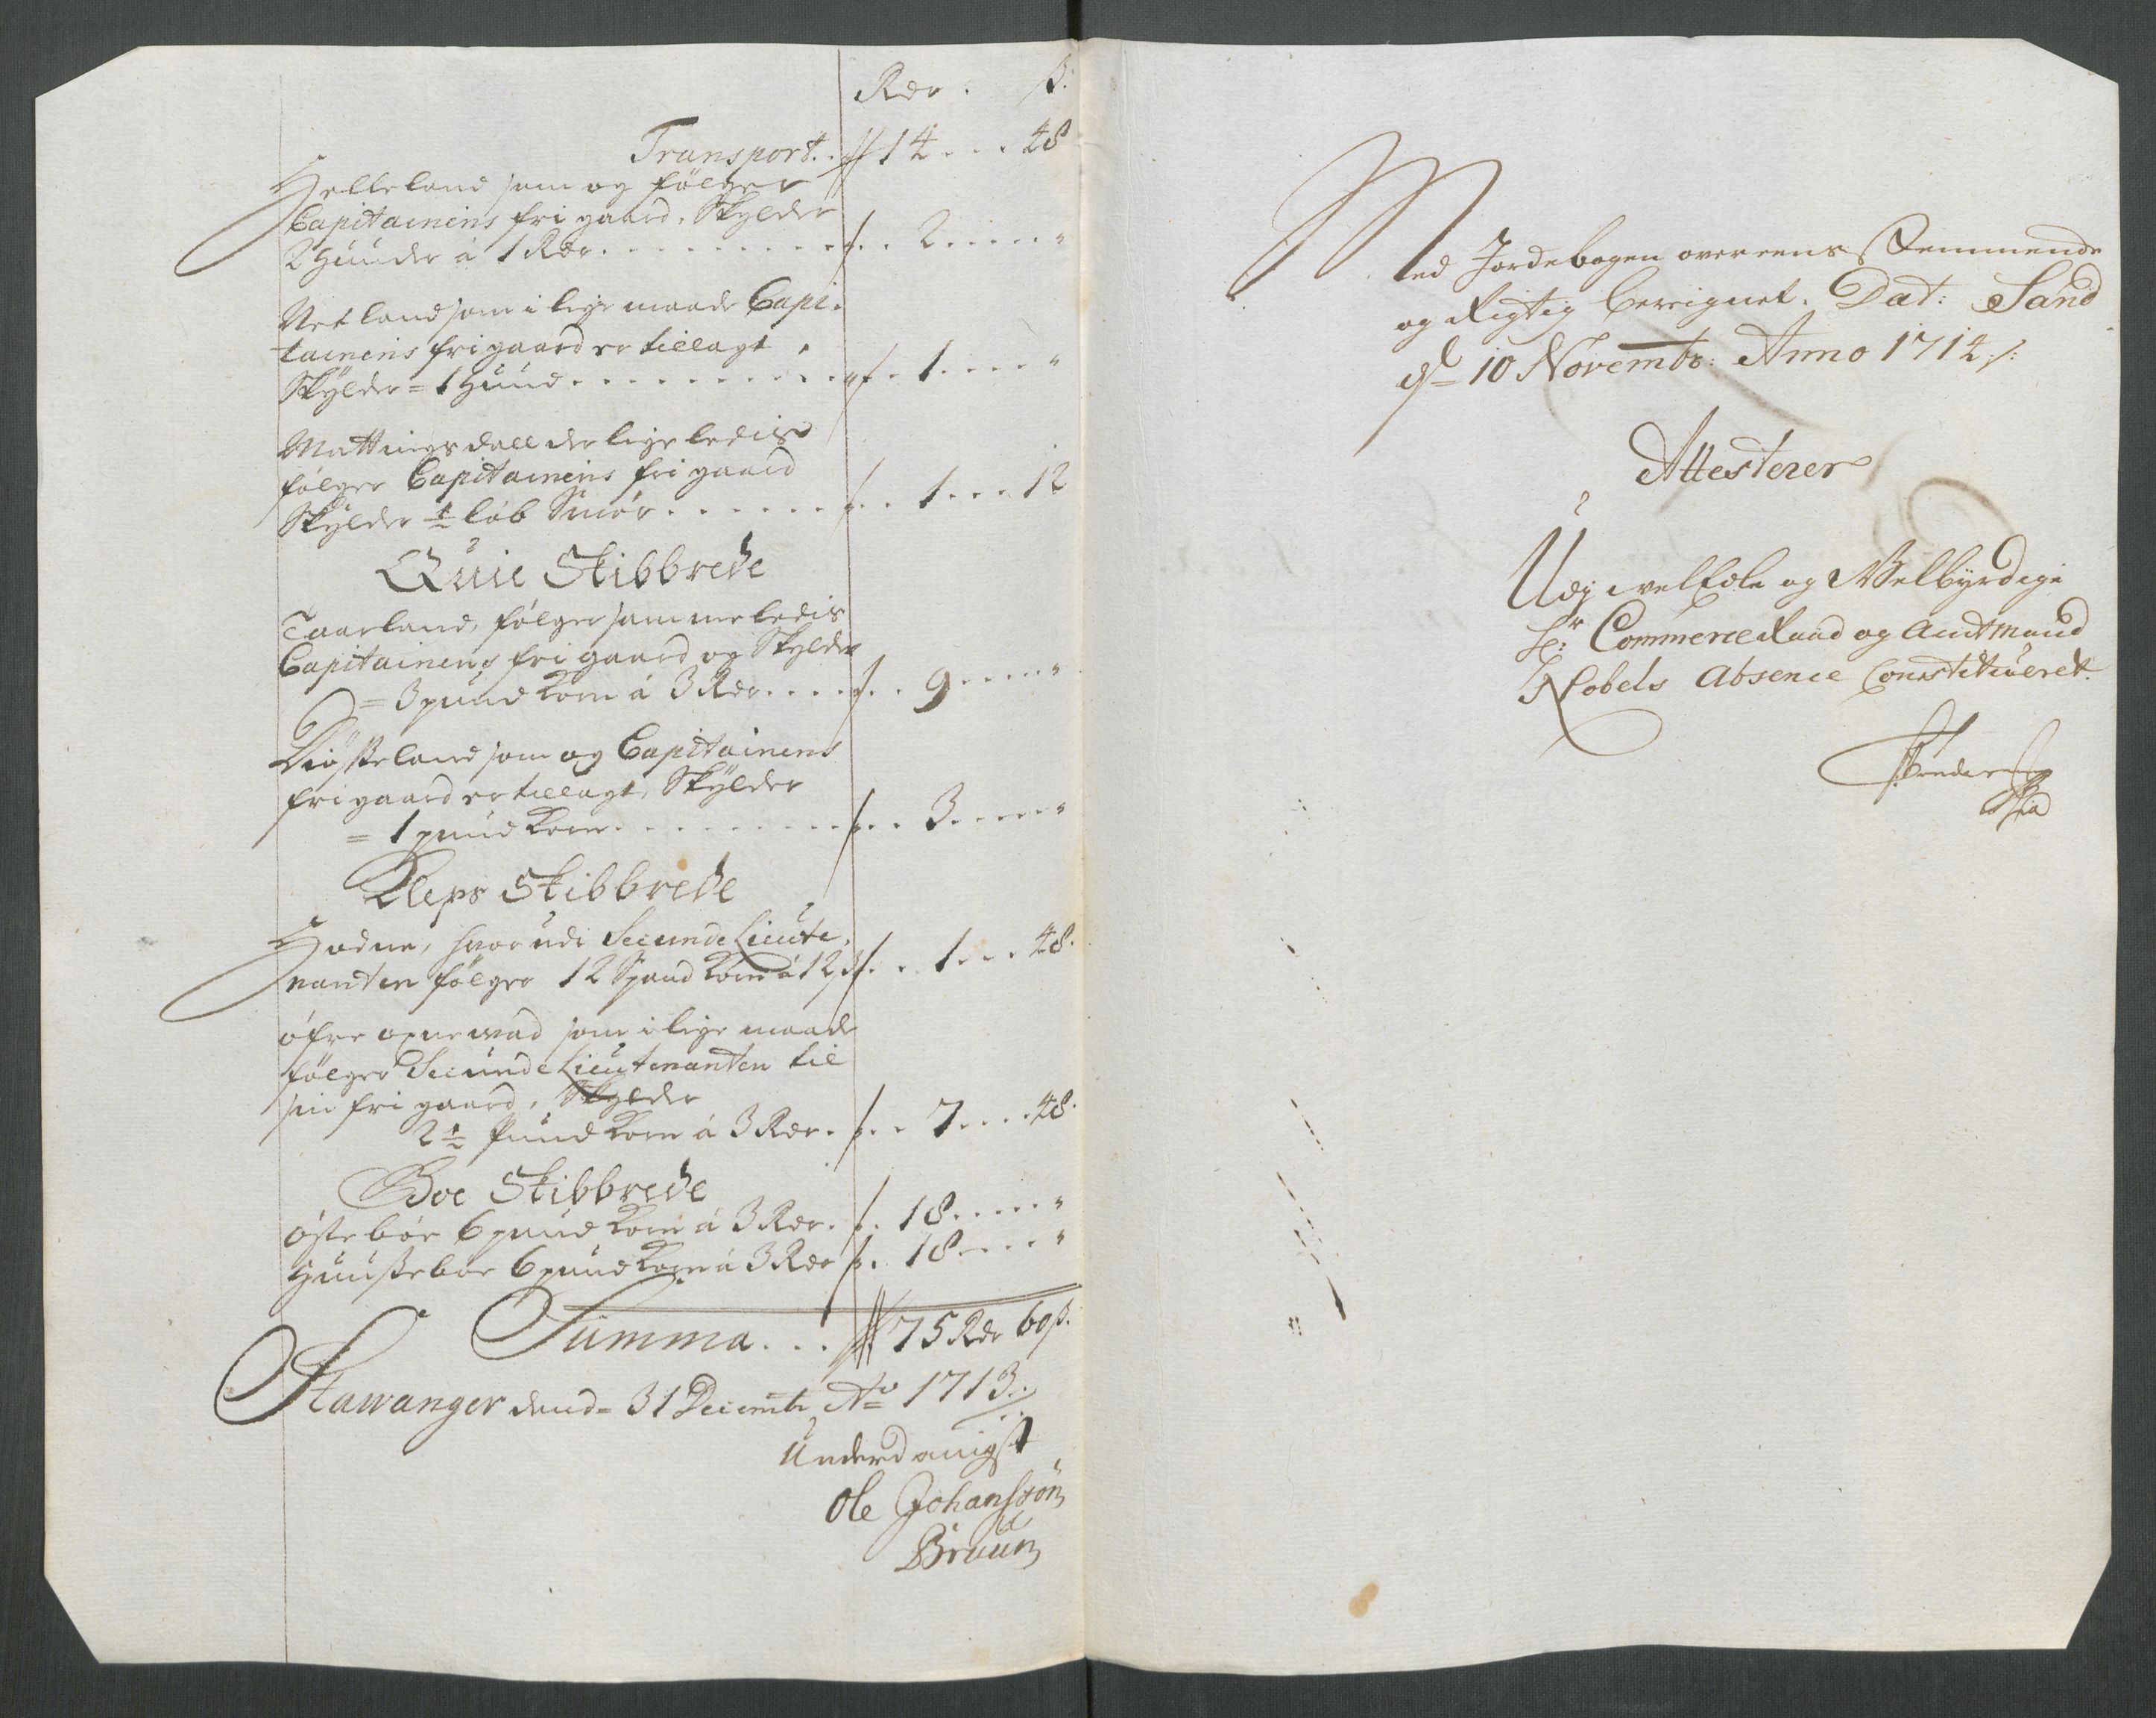 Rdr. ß.
Transport.. 14 ... 48
Helleland som og følger
Capitainens fri gaard, Skylder
2 Huuder á 1 Rdr. ... 2 ... "
Netland som i lige maade Capi-
tainens fri gaard er tillagt,
Skylder = 1 Huud ... 1 ... "
Mattingsdall der lige ledis
følger Capitainens fri gaard
Skylder ½ løb Smør ... 1 ... 12
Quie Skibbrede
Taarland, følger samme ledis
Capitainens fri gaard og Skylder
= 3 pund Korn á 3 Rdr. ... 9 ... "
Diøsseland som og Capitainens
fri gaard er tillagt, Skylder
= 1 pund Korn ... 3 ... "
Kleps Skibbrede
Hodne, hvor udi Secunde Lieute-
nanten følger 12 Spand Korn á 12 ß. ... 1 ... 48.
øfre opnewad som i lige maade
følger Secunde Lieutenanten til
sin fri gaard, Skylder
2½ Pund Korn á 3 Rdr. ... 7 ... 48.
Boe Skibbrede
Østebøe 6 pund Korn á 3 Rdr. ... 18 ... "
Huussebøe 6 pund Korn á 3 Rdr ... 18 ... "
Summa ... 75 Rdr 60 ß.
Stawanger dend = 31 Decemb: Ao 1713.
Underdanigst
Ole Johanssøn
Bruun
Med Jordebogen overeens Stemmende
og Rigtig beregnet. Dat: Sand
d = 10 Novembr: Anno 1714 ⁒
Attesterer
Udj welEdle og Welbyrdige
Hr: Commerce Raad og Amtmand
Nobels Absence Constitueret.